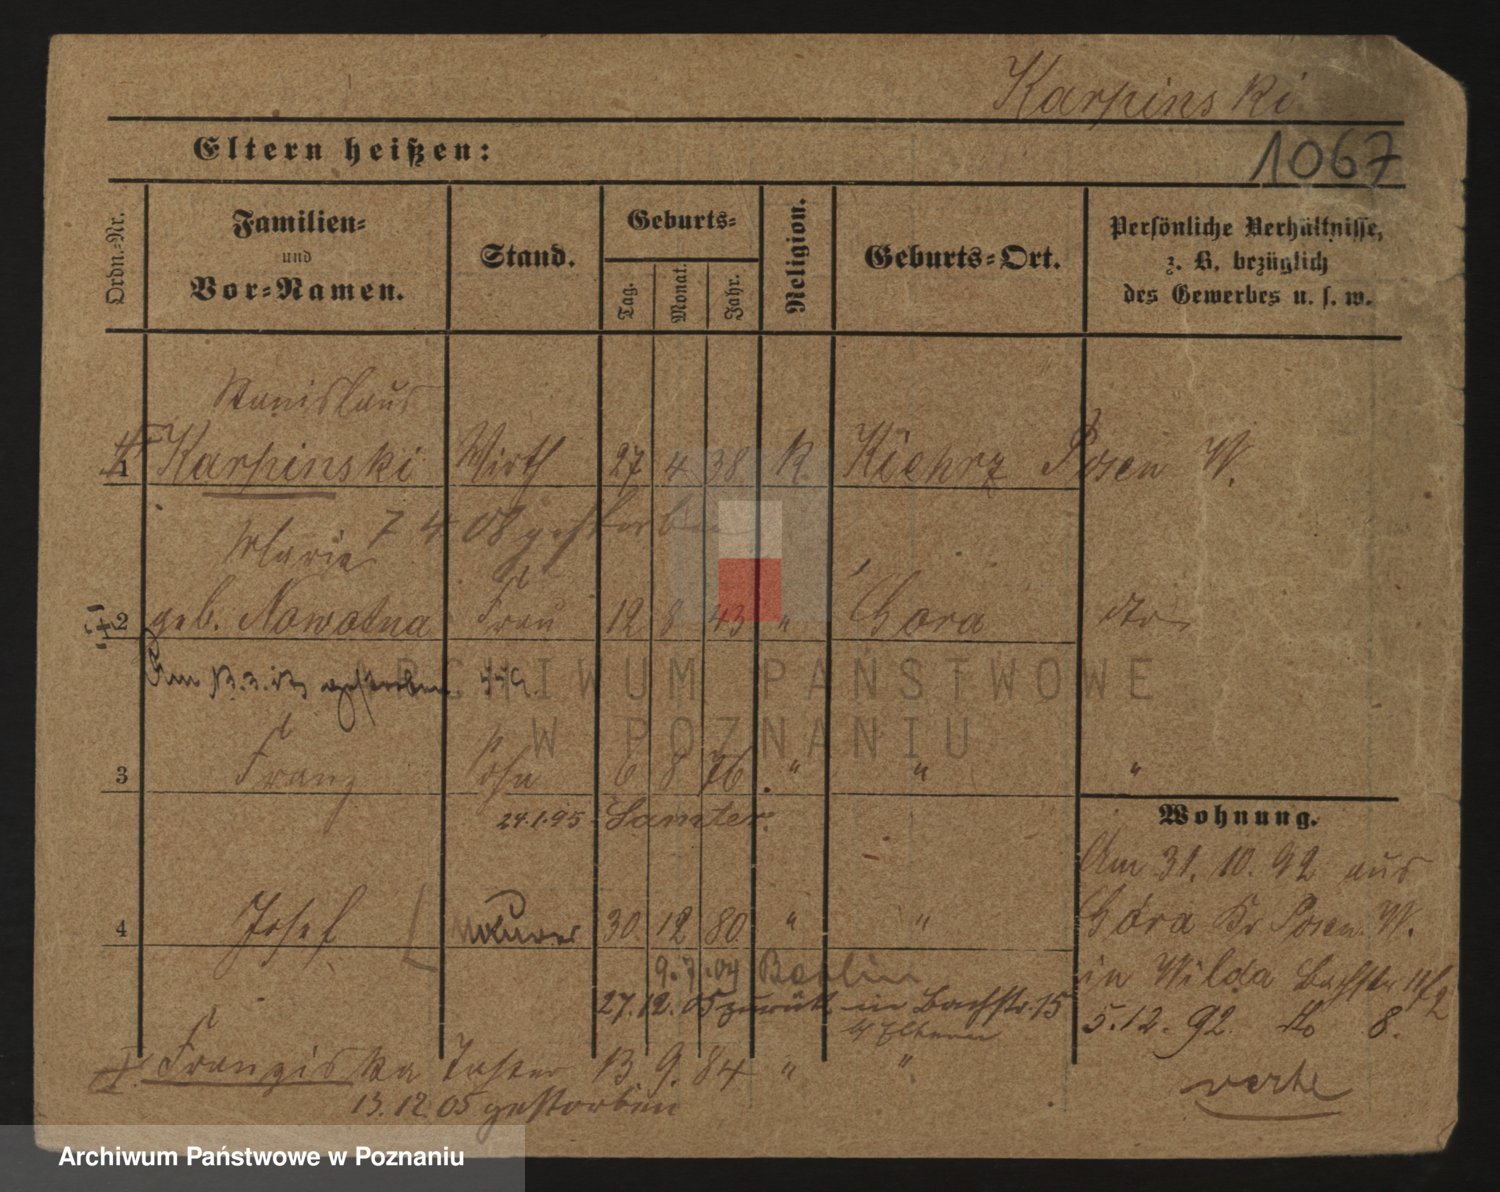 Karpinski
1067
Eltern heißen:
Ordn.-Nr.
Familien-
und
Vor-Namen.
Stand.
Geburts-
Tag.
Monat.
Jahr.
Religion.
Geburts-Ort.
Persönliche Verhältnisse,
z. B. bezüglich
des Gewerbes u. s. w.
Stanislaus
1 Karpinski Wirth 27 4 38 K. Kiehrz Posen W.
7 4 08 gestorben
Marie
2 geb. Nowotna Frau 12 8 43 " Gora dto
Am 13.3. gestorben
3 Franz Sohn 6 8 76 " " "
24.1.95 Samter.
Wohnung.
Am 31. 10. 92 aus
Góra Kr Posen. W.
in Wilda Bachstr
5.12. 92. dto 8.
verte
4 Josef Maurer 30 12 80 " "
9.7.04 Berlin
27.12.05 zurück in Bachstr. 15
b/ Eltern
Franziska Tochter 13 9. 84 " "
13.12.05 gestorben
ARCHIWUM PAŃSTWOWE
W POZNANIU
Archiwum Państwowe w Poznaniu